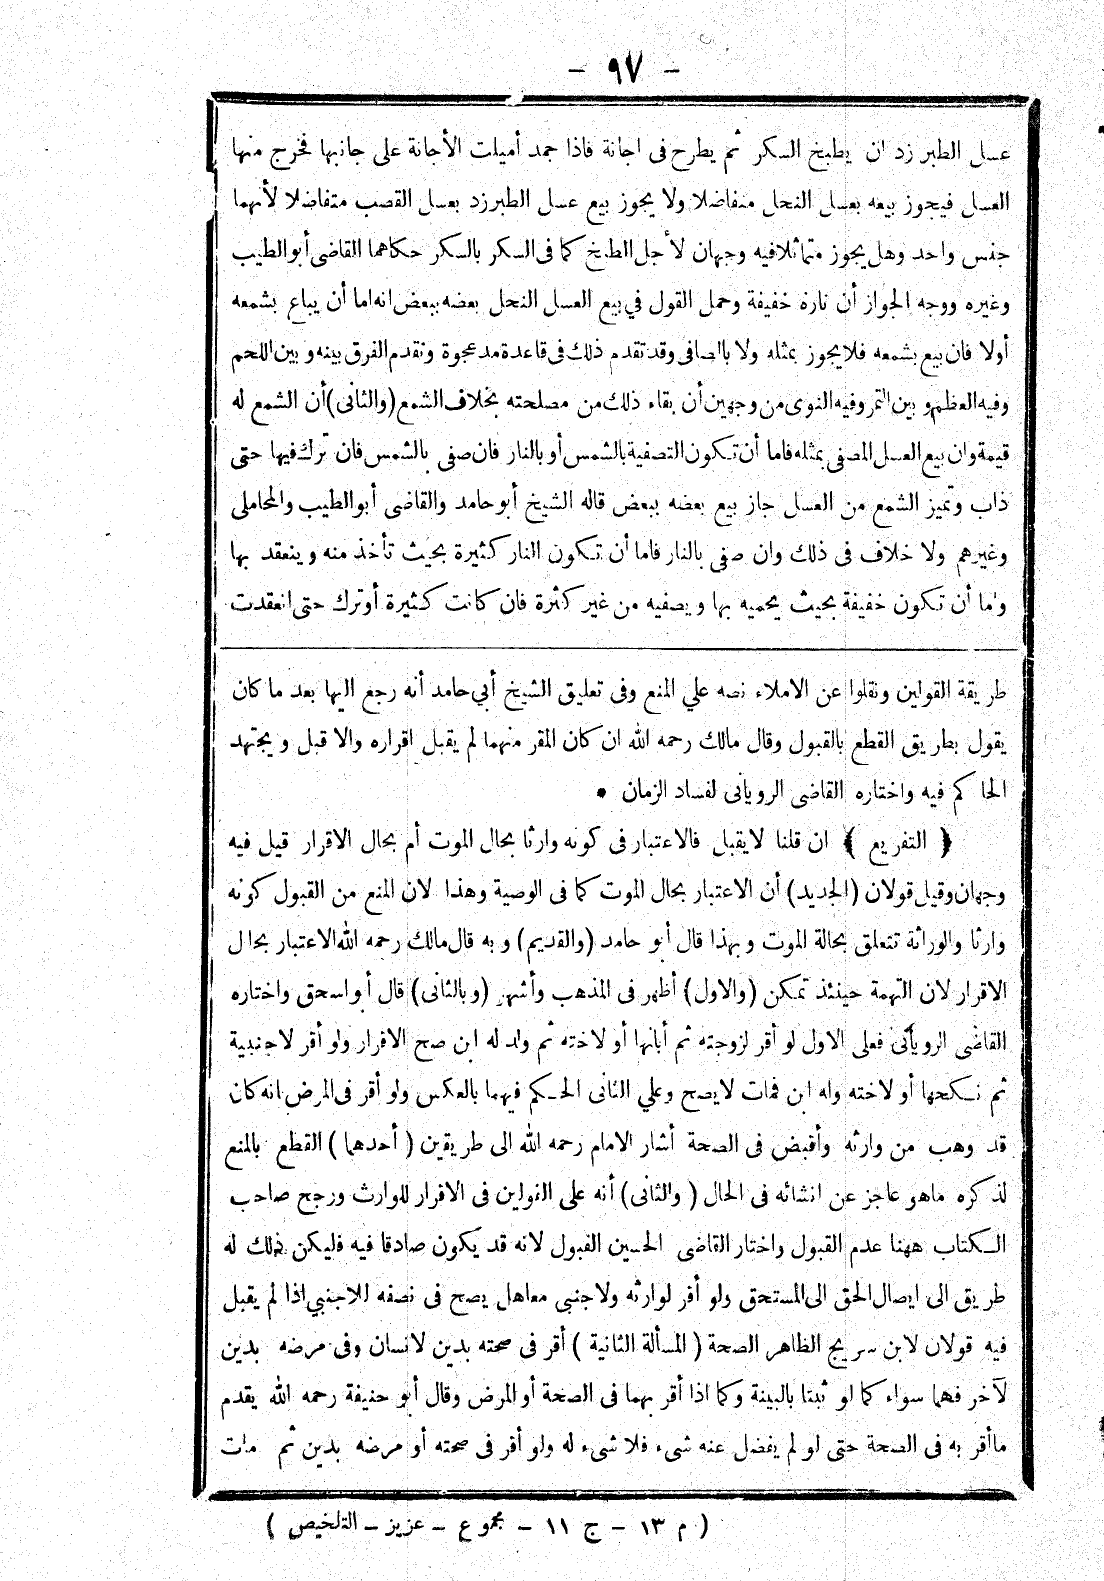 - ٩٧ -
عسل الطبر زد ان يطبخ السكر ثم يطرح فى اجانة فاذا جمد أميلت الأجانة على جانبها فخرج منها
العسل فيجوز بيعه بعسل النحل متفاضلا ولا يجوز بيع عسل الطبرزد بعسل القصب متفاضلا لأنهما
جنس واحد وهل يجوز متماثلا فيه وجهان لأجل الطبخ كما فى السكر بالسكر حكاهما القاضى أبو الطيب
وغيره ووجه الجواز أن ناره خفيفة وحمل القول في بيع العسل النحل بعضه ببعض انه اما أن يباع بشمعه
أولا فان بيع بشمعه فلا يجوز بمثله ولا بالصافى وقد تقدم ذلك فى قاعدة مد عجوة وتقدم الفرق بينه و بين اللحم
وفيه العظم و بين التمر وفيه النوى من وجهين أن بقاء ذلك من مصلحته بخلاف الشمع (والثانى) أن الشمع له
قيمة وان بيع العسل المصفى بمثله فاما أن تكون التصفية بالشمس أو بالنار فان صفى بالشمس فان ترك فيها حتى
ذاب وتميز الشمع من العسل جاز بيع بعضه ببعض قاله الشيخ أبو حامد والقاضى أبو الطيب والمحاملى
وغيرهم ولا خلاف فى ذلك وان صفى بالنار فاما أن تكون النار كثيرة بحيث تأخذ منه و ينعقد بها
واما أن تكون خفيفة بحيث يحميه بها و يصفيه من غير كثرة فان كانت كثيرة أو ترك حتى انعقدت
طريقة القولين ونقلوا عن الاملاء نصه علي المنع وفى تعليق الشيخ أبي حامد أنه رجع اليها بعد ما كان
يقول بطريق القطع بالقبول وقال مالك رحمه الله ان كان المقر متهما لم يقبل اقراره والا قبل و يجتهد
الحا كم فيه واختاره القاضى الرويانى لفساد الزمان •
﴿ التفريع ﴾ ان قلنا لا يقبل فالاعتبار فى كونه وارثا بحال الموت أم بحال الاقرار قيل فيه
وجهان وقيل قولان (الجديد) أن الاعتبار بحال الموت كما فى الوصية وهذا لان المنع من القبول كونه
وارثا والوراثة تتعلق بحالة الموت و بهذا قال أبو حامد (والقديم) و به قال مالك رحمه الله الاعتبار بحال
الاقرار لان التهمة حينئذ تمكن (والاول) أظهر فى المذهب وأشهر (و بالثانى) قال أبو اسحق واختاره
القاضى الرويانى فعلى الاول لو أقر لزوجته ثم أبانها أو لاخته ثم ولد له ابن صح الاقرار ولو أقر لاجنبية
ثم نكحها أو لاخته وله ابن فمات لا يصح وعلي الثانى الحكم فيهما بالعكس ولو أقر فى المرض انه كان
قد وهب من وارثه وأقبض فى الصحة أشار الامام رحمه الله الى طريقين ( أحدهما ) القطع بالمنع
لذكره ماهو عاجز عن انشائه فى الحال ( والثانى) أنه على القولين فى الاقرار للوارث ورجح صاحب
الكتاب ههنا عدم القبول واختار القاضى الحسين القبول لانه قد يكون صادقا فيه فليكن ذلك له
طريق الى ايصال الحق الى المستحق ولو أقر لوارثه ولاجنبى معا هل يصح فى نصفه للاجنبي اذا لم يقبل
فيه قولان لابن سريج الظاهر الصحة ( المسألة الثانية ) أقر فى صحته بدين لانسان وفى مرضه بدين
لآخر فهما سواء كما لو ثبتا بالبينة وكما اذا أقر بهما فى الصحة أو المرض وقال أبو حنيفة رحمه الله يقدم
ماأقر به فى الصحة حتى لو لم يفضل عنه شىء فلا شىء له ولو أقر فى صحته أو مرضه بدين ثم مات
( م ١٣ - ج ١١ - مجموع - عزيز - التلخيص )